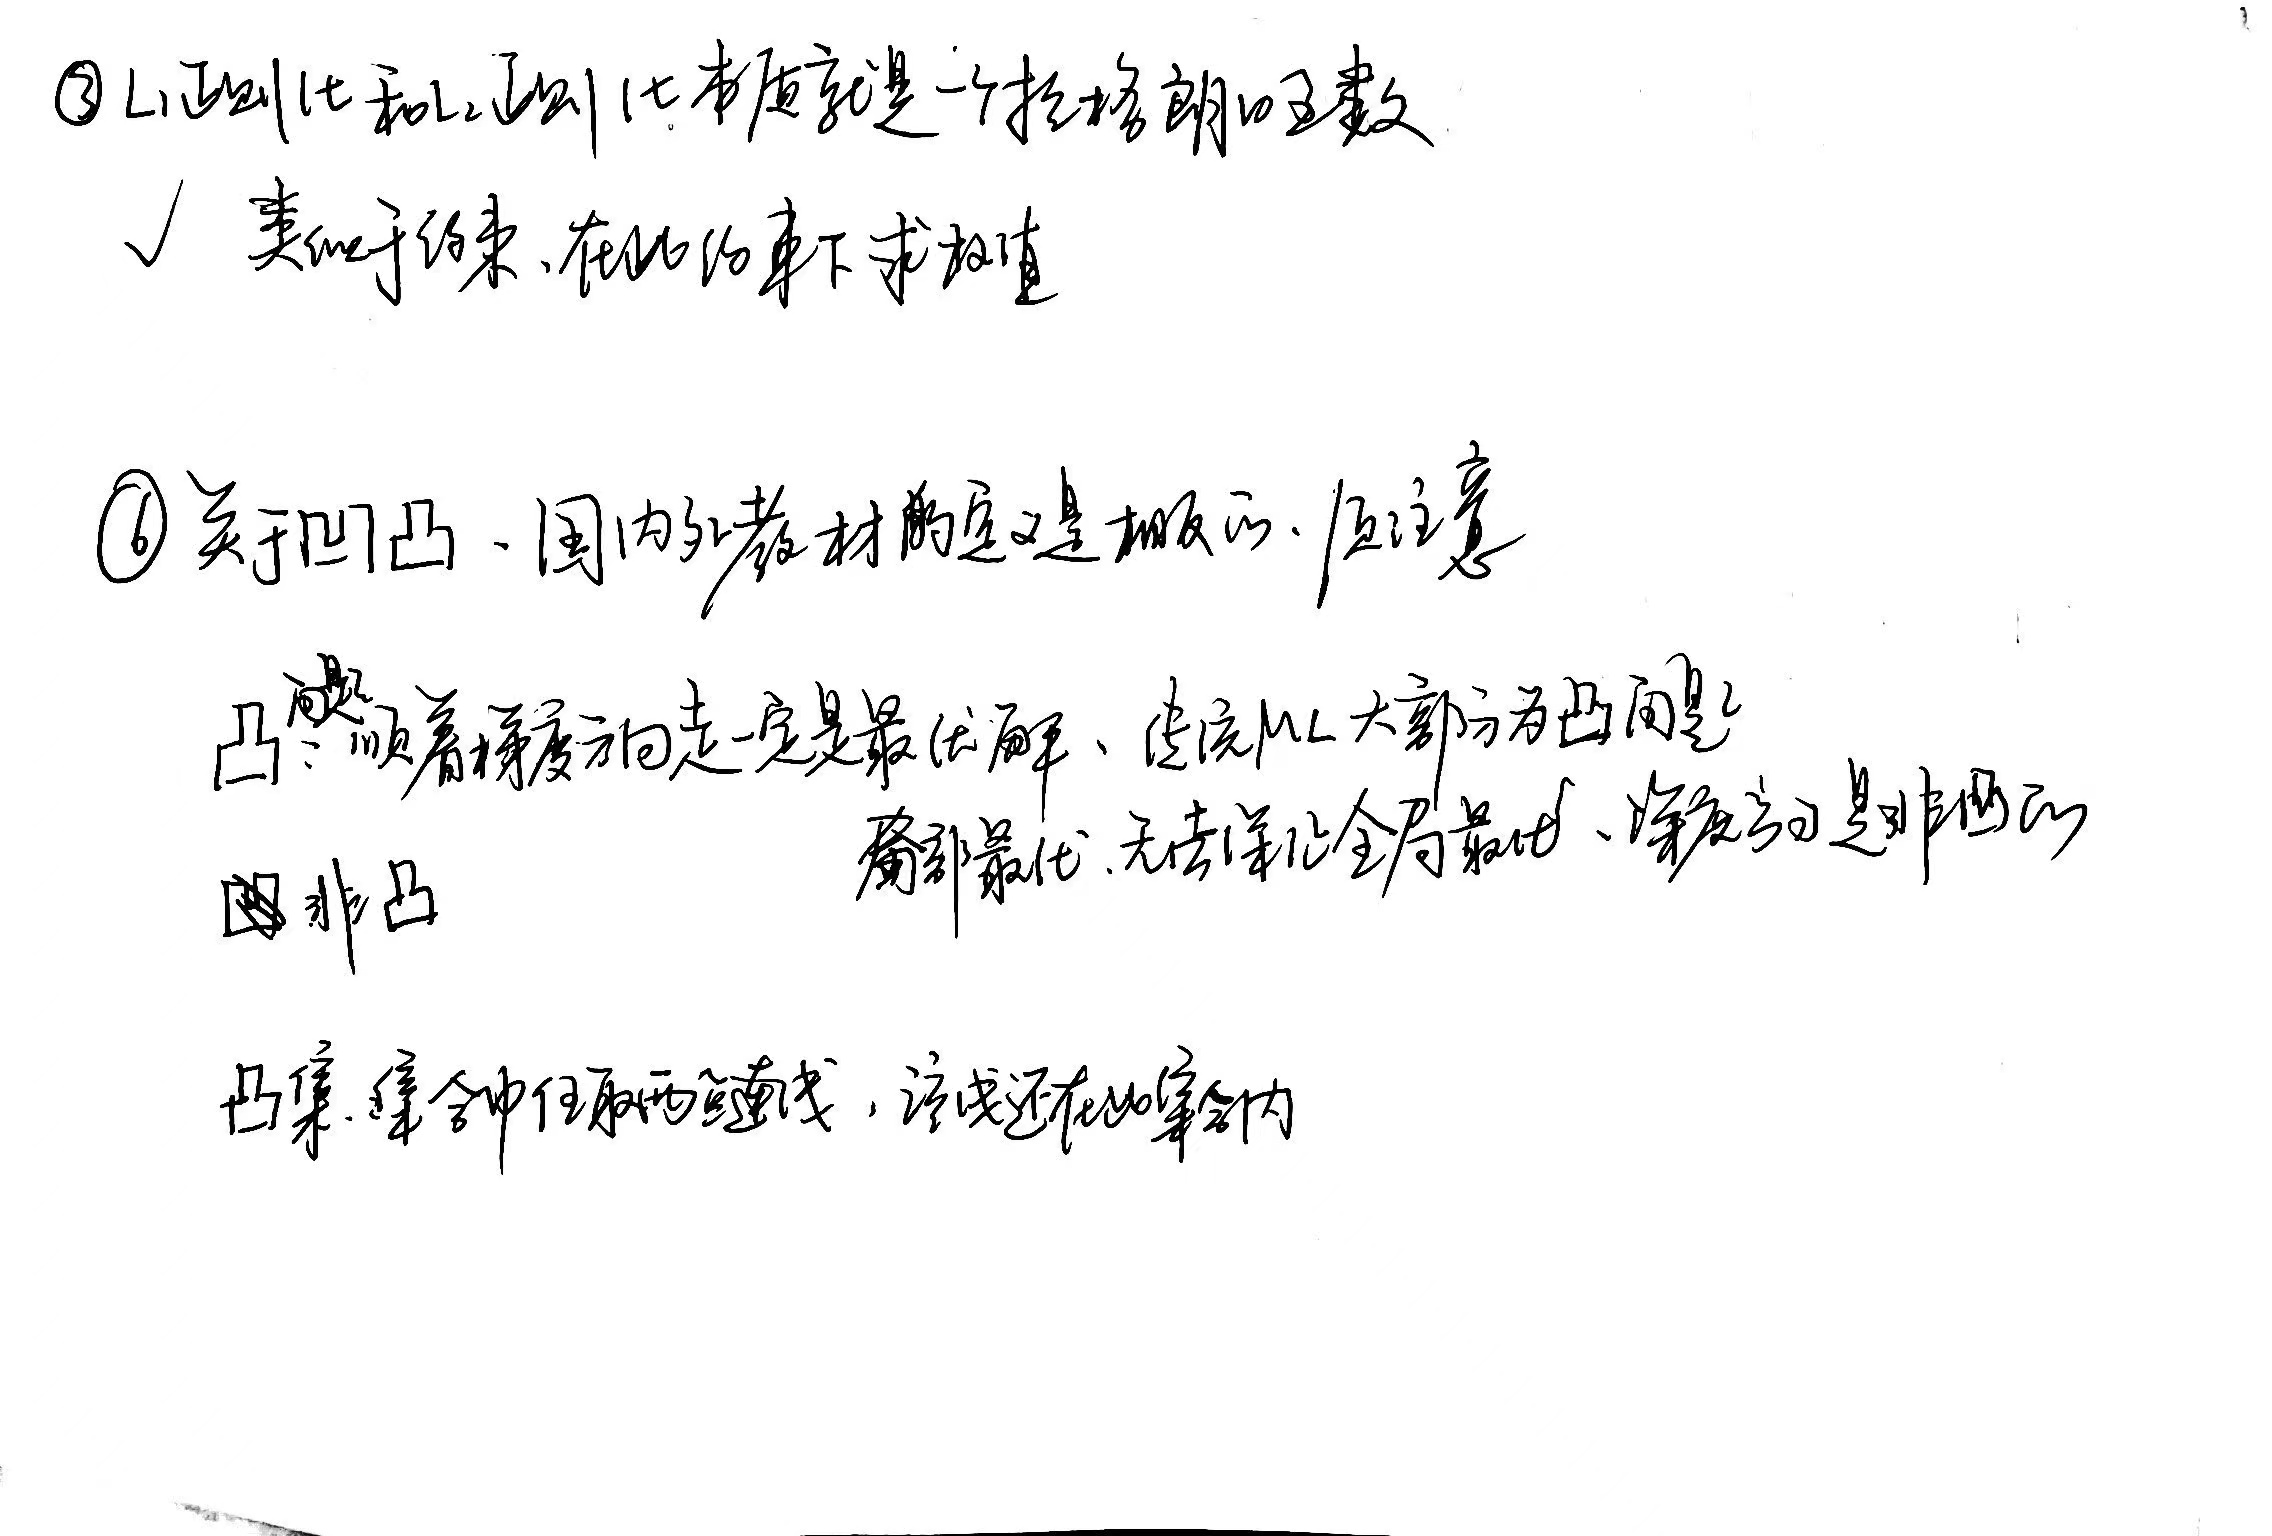 ⑤L₁正则化和L₂正则化本质就是一个拉格朗日函数
✓ 类似于约束、在此约束下求权值
⑥关于凹凸、国内外教材的定义是相反的、须注意
凸问题:顺着梯度方向走一定是最优解、传统ML大部分为凸问题
非凸 局部最优、无法保证全局最优、深度学习是非凸的
凸集.集合中任取两点连线,该线还在此集合内